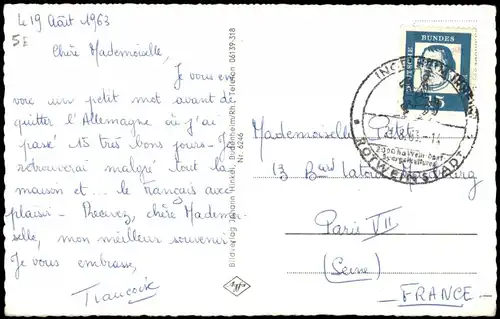 le 19 Août 1963
Chère Mademoiselle,
Je vous en-
voie un petit mot avant de
quitter l'Allemagne où j'ai
passé 15 très bons jours. Je
retrouverai malgré tout la
maison et ... le français avec
plaisir - Recevez, chère Mademoi-
selle, mon meilleur souvenir.
Je vous embrasse,
Bildverlag Johann Hinkel, Budenheim/Rh., Telefon 06139-318
Nr. 6246
Agfa
DEUTSCHE BUNDES
15
INGELHEIM
ROTWEINSTADT
Mademoiselle
13 Bard Latour Maubourg
Paris VII
(Seine)
- FRANCE -